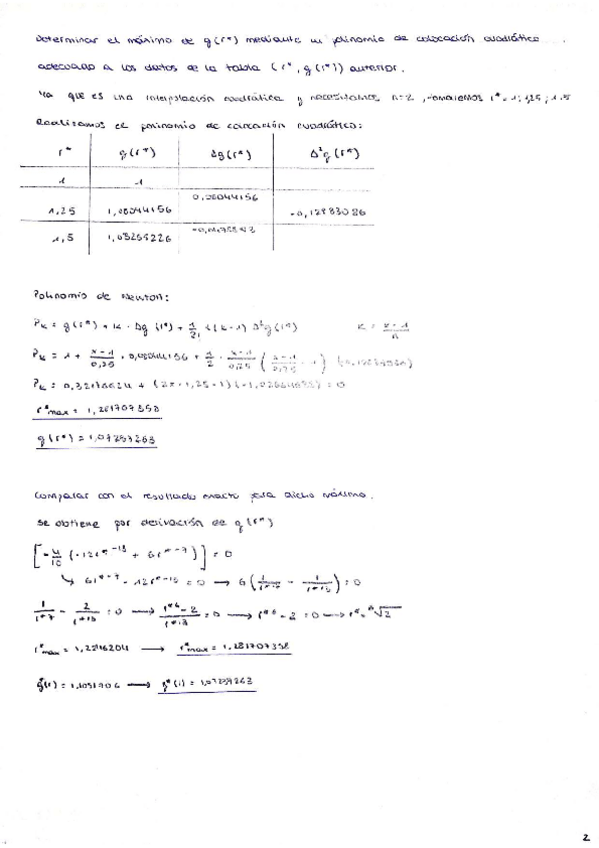 Determinar el máximo de g(r*) mediante un polinomio de colocación cuadrático
adecuado a los datos de la tabla (r*, g(r*)) anterior.
Ya que es una interpolación cuadrática y necesitamos n=2, tomaremos r* = 1; 1,25; 1.5
Realizamos el polinomio de colocación cuadrático:
r* g(r*) Δg(r*) Δ²g(r*)
1 1
0,08044156
1,25 1,08044156 -0,12883086
1,5
Polinomio de Newton:
Pk = g(r*) + k · Δg (r*) + 1/2! k(k-1) Δ²g(r*) k =
Pk = 1 + x-1/0,25 · 0,08044156 + 1/2 · x-1/0,25 (x-1/0,25 - 1)
r*max = 1,281707358
g(r*) = 1,07257263
Comparar con el resultado exacto para dicho máximo.
Se obtiene por derivación de g(r*)
[-4/10 (-12r*^-13 + 6r*^-7)] = 0
↳ 6r*^-7 - 12r*^-13 = 0 → 6(
1/r*7 - 2/r*13 = 0 → r*6-2/r*13 = 0 → r*6 - 2 = 0 → r* = ⁶√2
r*max = 1,12246204 → r*max = 1,281707358
2